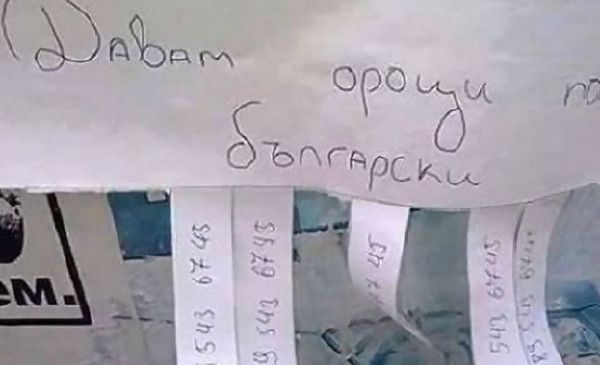 Давам
ороци по
български
ем.
543 6745
9 543 6745
45
543 6745